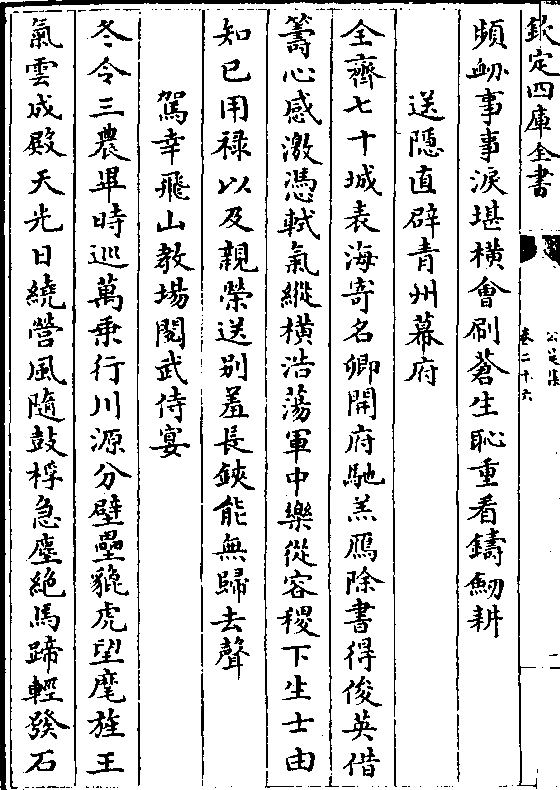 欽定四庫全書
公是集
卷二十六
頻劒事事淚堪橫會刷蒼生恥重看鑄劒耕
送隱直辟青州幕府
全齊七十城表海寄名卿開府馳羔鴈除書得俊英借
籌心感激憑軾氣縱橫浩蕩軍中樂從容稷下生士由
知已用禄以及親榮送别羞長鋏能無歸去聲
駕幸飛山教場閲武侍宴
冬令三農畢時巡萬乗行川源分壁壘貔虎望麾旌王
氣雲成殿天光日繞營風隨鼓桴急塵絶馬蹄輕發石